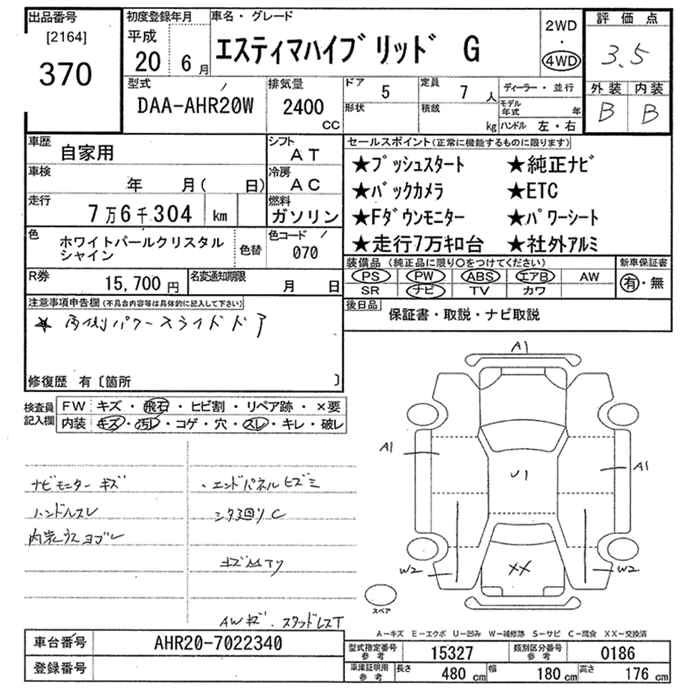 出品番号 初度登録年月 車名・グレード 2WD・4WD 評価点
[2164] 370
平成 20 6月 エスティマハイブリッド G 3.5
型式 排気量 ドア 5 定員 7人 ディーラー・並行 外装 内装
DAA-AHR20W 2400cc 形状 積載 kg モデル年式 年 B B
ハンドル 左・右
車歴 自家用 シフト AT セールスポイント(正常に機能するものに限ります)
車検 年 月(日) 冷房 AC ★プッシュスタート ★純正ナビ
★バックカメラ ★ETC
走行 7万6千304 km 燃料 ガソリン ★Fダウンモニター ★パワーシート
★走行7万キロ台 ★社外アルミ
色 ホワイトパールクリスタルシャイン 色替 色コード 070
装備品(純正品に限り○をつけてください) 新車保証書
PS PW ABS エアB AW 有・無
SR ナビ TV カワ
R券 15,700円 名変通知期限 月 日
後日品 保証書・取説・ナビ取説
注意事項申告欄(不具合内容等は具体的に記入して下さい)
★両側パワースライドドア
修復歴 有〔箇所 〕
検査員記入欄 FW キズ・飛石・ヒビ割・リペア跡・×要
内装 キズ・汚レ・コゲ・穴・スレ・キレ・破レ
ナビモニターキズ
ハンドルスレ
内装ウスヨゴレ
・エンドパネルヒズミ
シタ回りC
AWキズ・スタッドレスT
A1
A1 U1 A1
W2 XX W2
スペア
A-キズ E-エクボ U-凹み W-補修跡 S-サビ C-腐食 XX-交換済
車台番号 AHR20-7022340
登録番号
型式指定番号 参考 15327 類別区分番号 参考 0186
車庫証明用 参考 長さ 480cm 幅 180cm 高さ 176cm